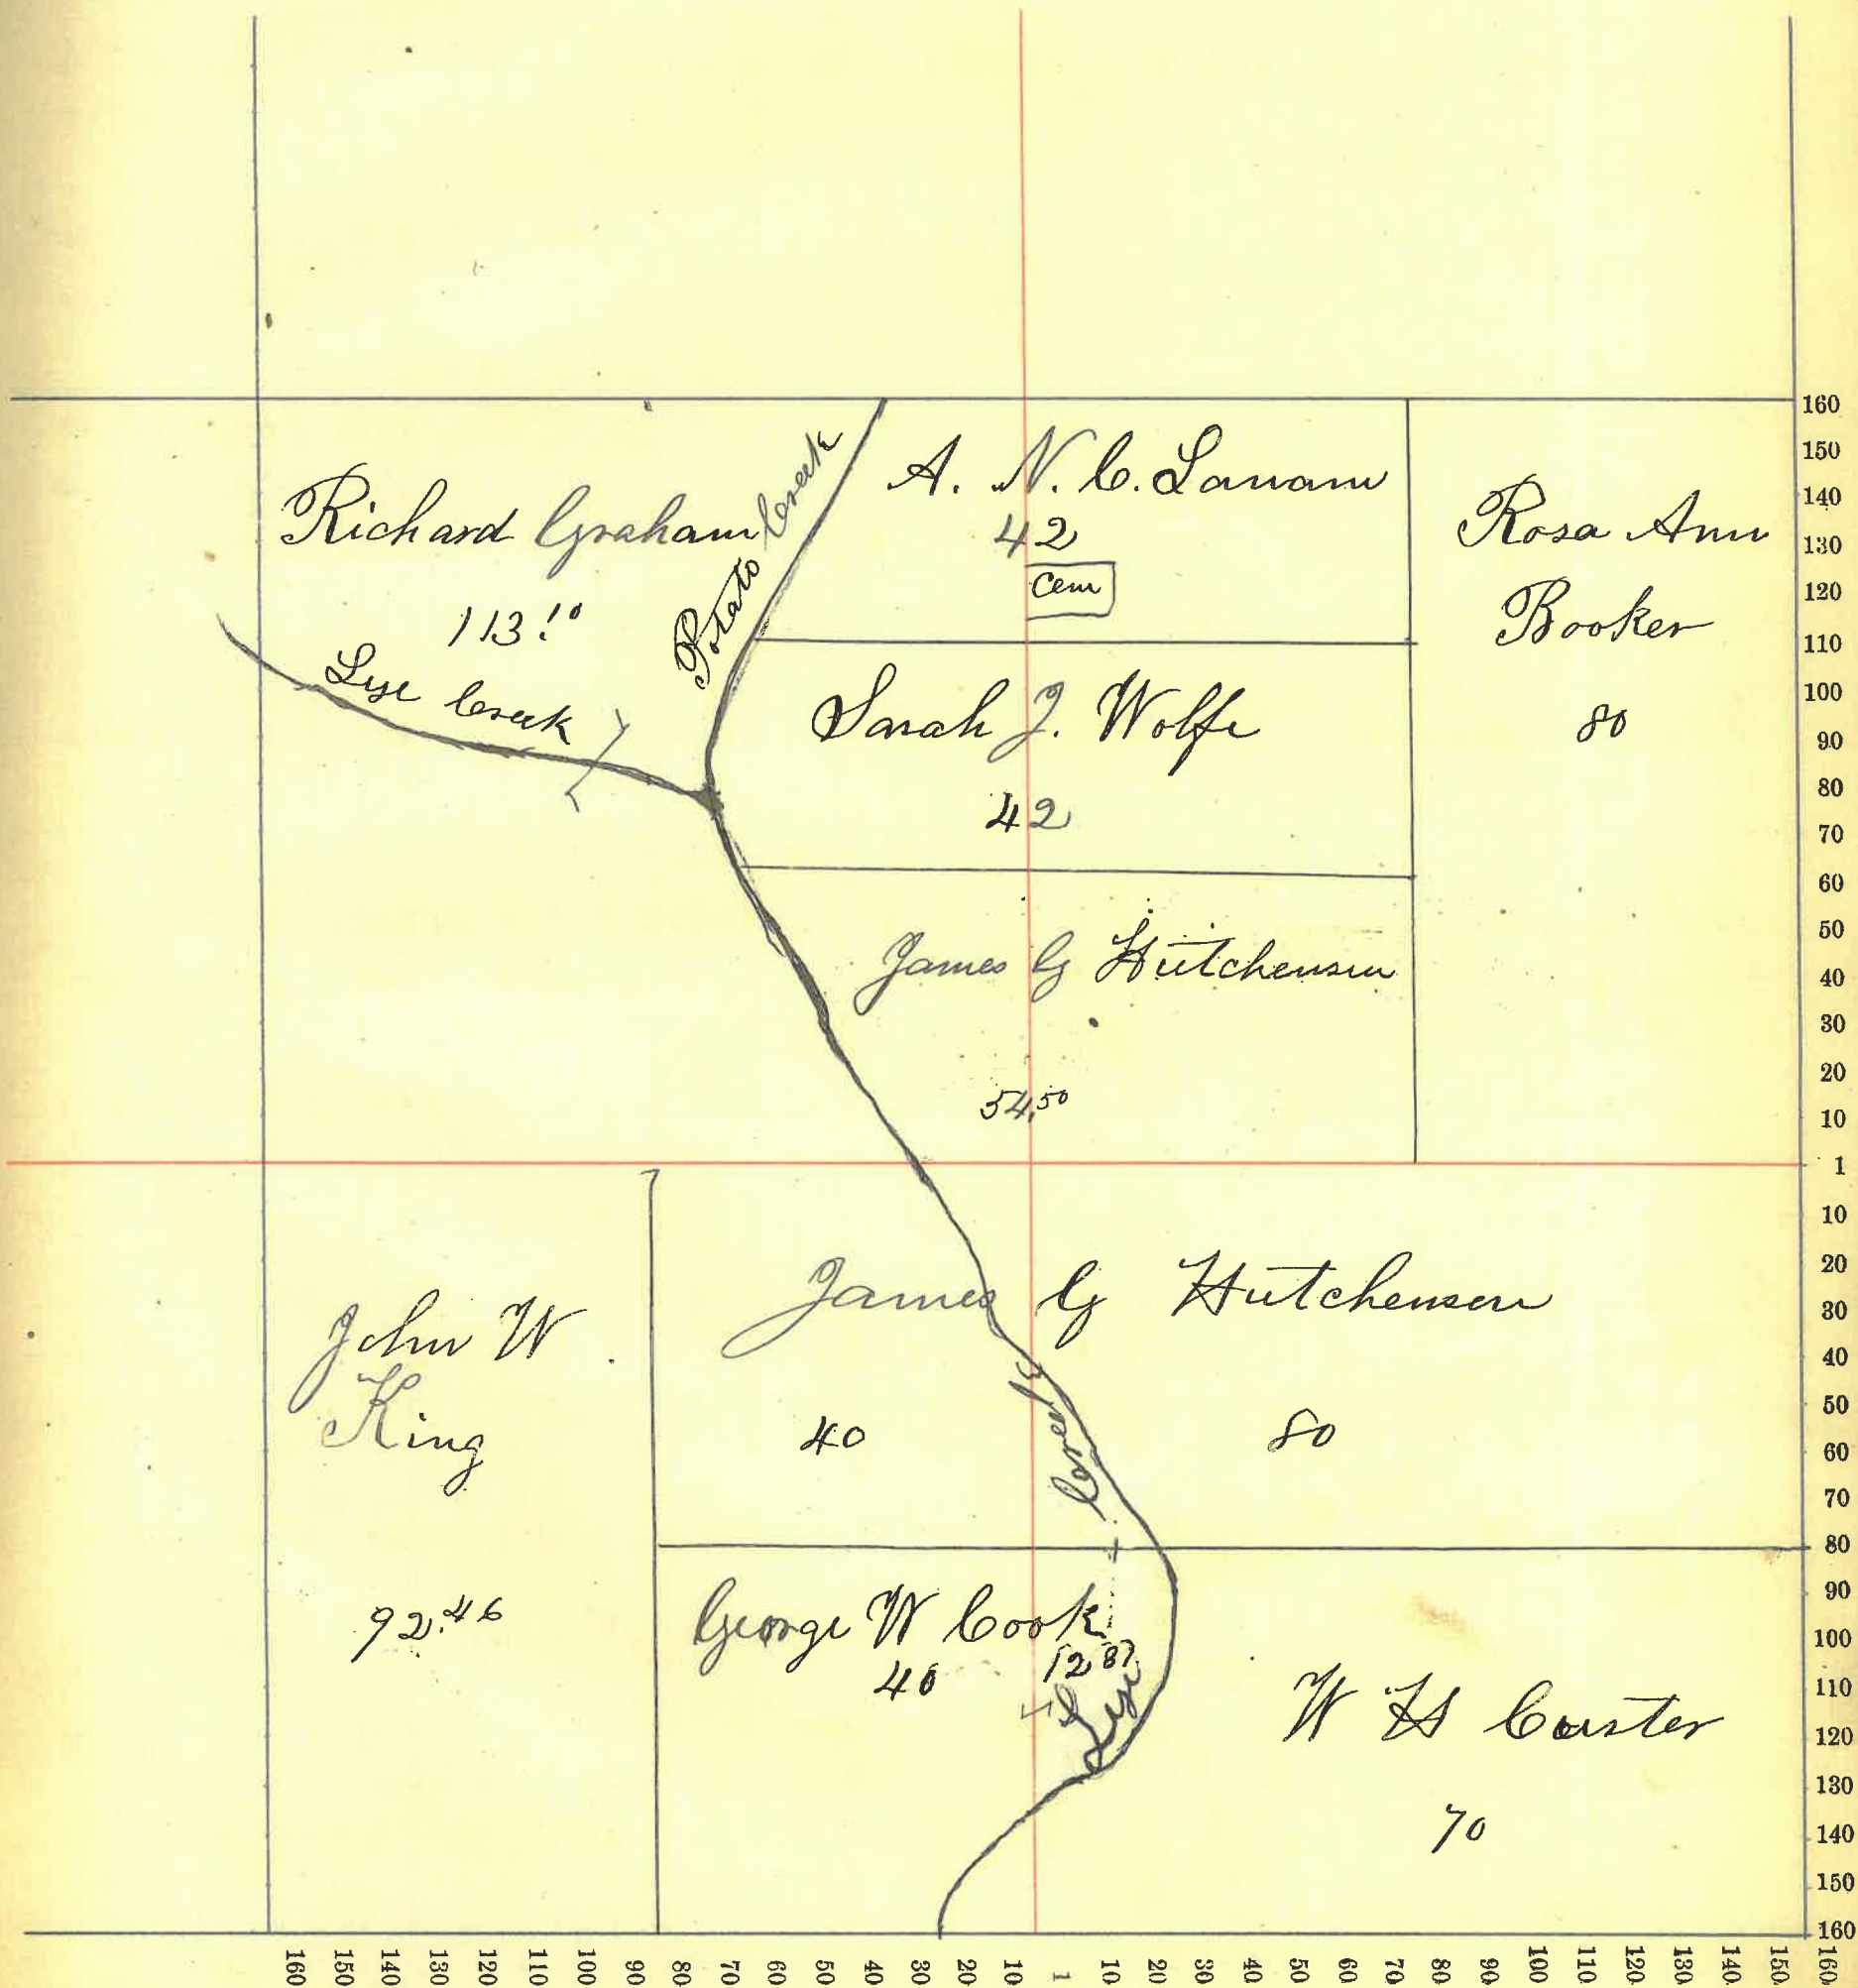 Richard Graham
113.10
Lye Creek
Potato Creek
A. N. C. Lanam
42
Cem
Rosa Ann
Booker
80
Sarah J. Wolfe
42
James G Hutchensen
54.50
James G Hutchensen
40
80
John W
King
92.46
George W Cook
40
12 87
Lye Creek
W H Custer
70
160
150
140
130
120
110
100
90
80
70
60
50
40
30
20
10
1
10
20
30
40
50
60
70
80
90
100
110
120
130
140
150
160
160 150 140 130 120 110 100 90 80 70 60 50 40 30 20 10 1 10 20 30 40 50 60 70 80 90 100 110 120 130 140 150 160